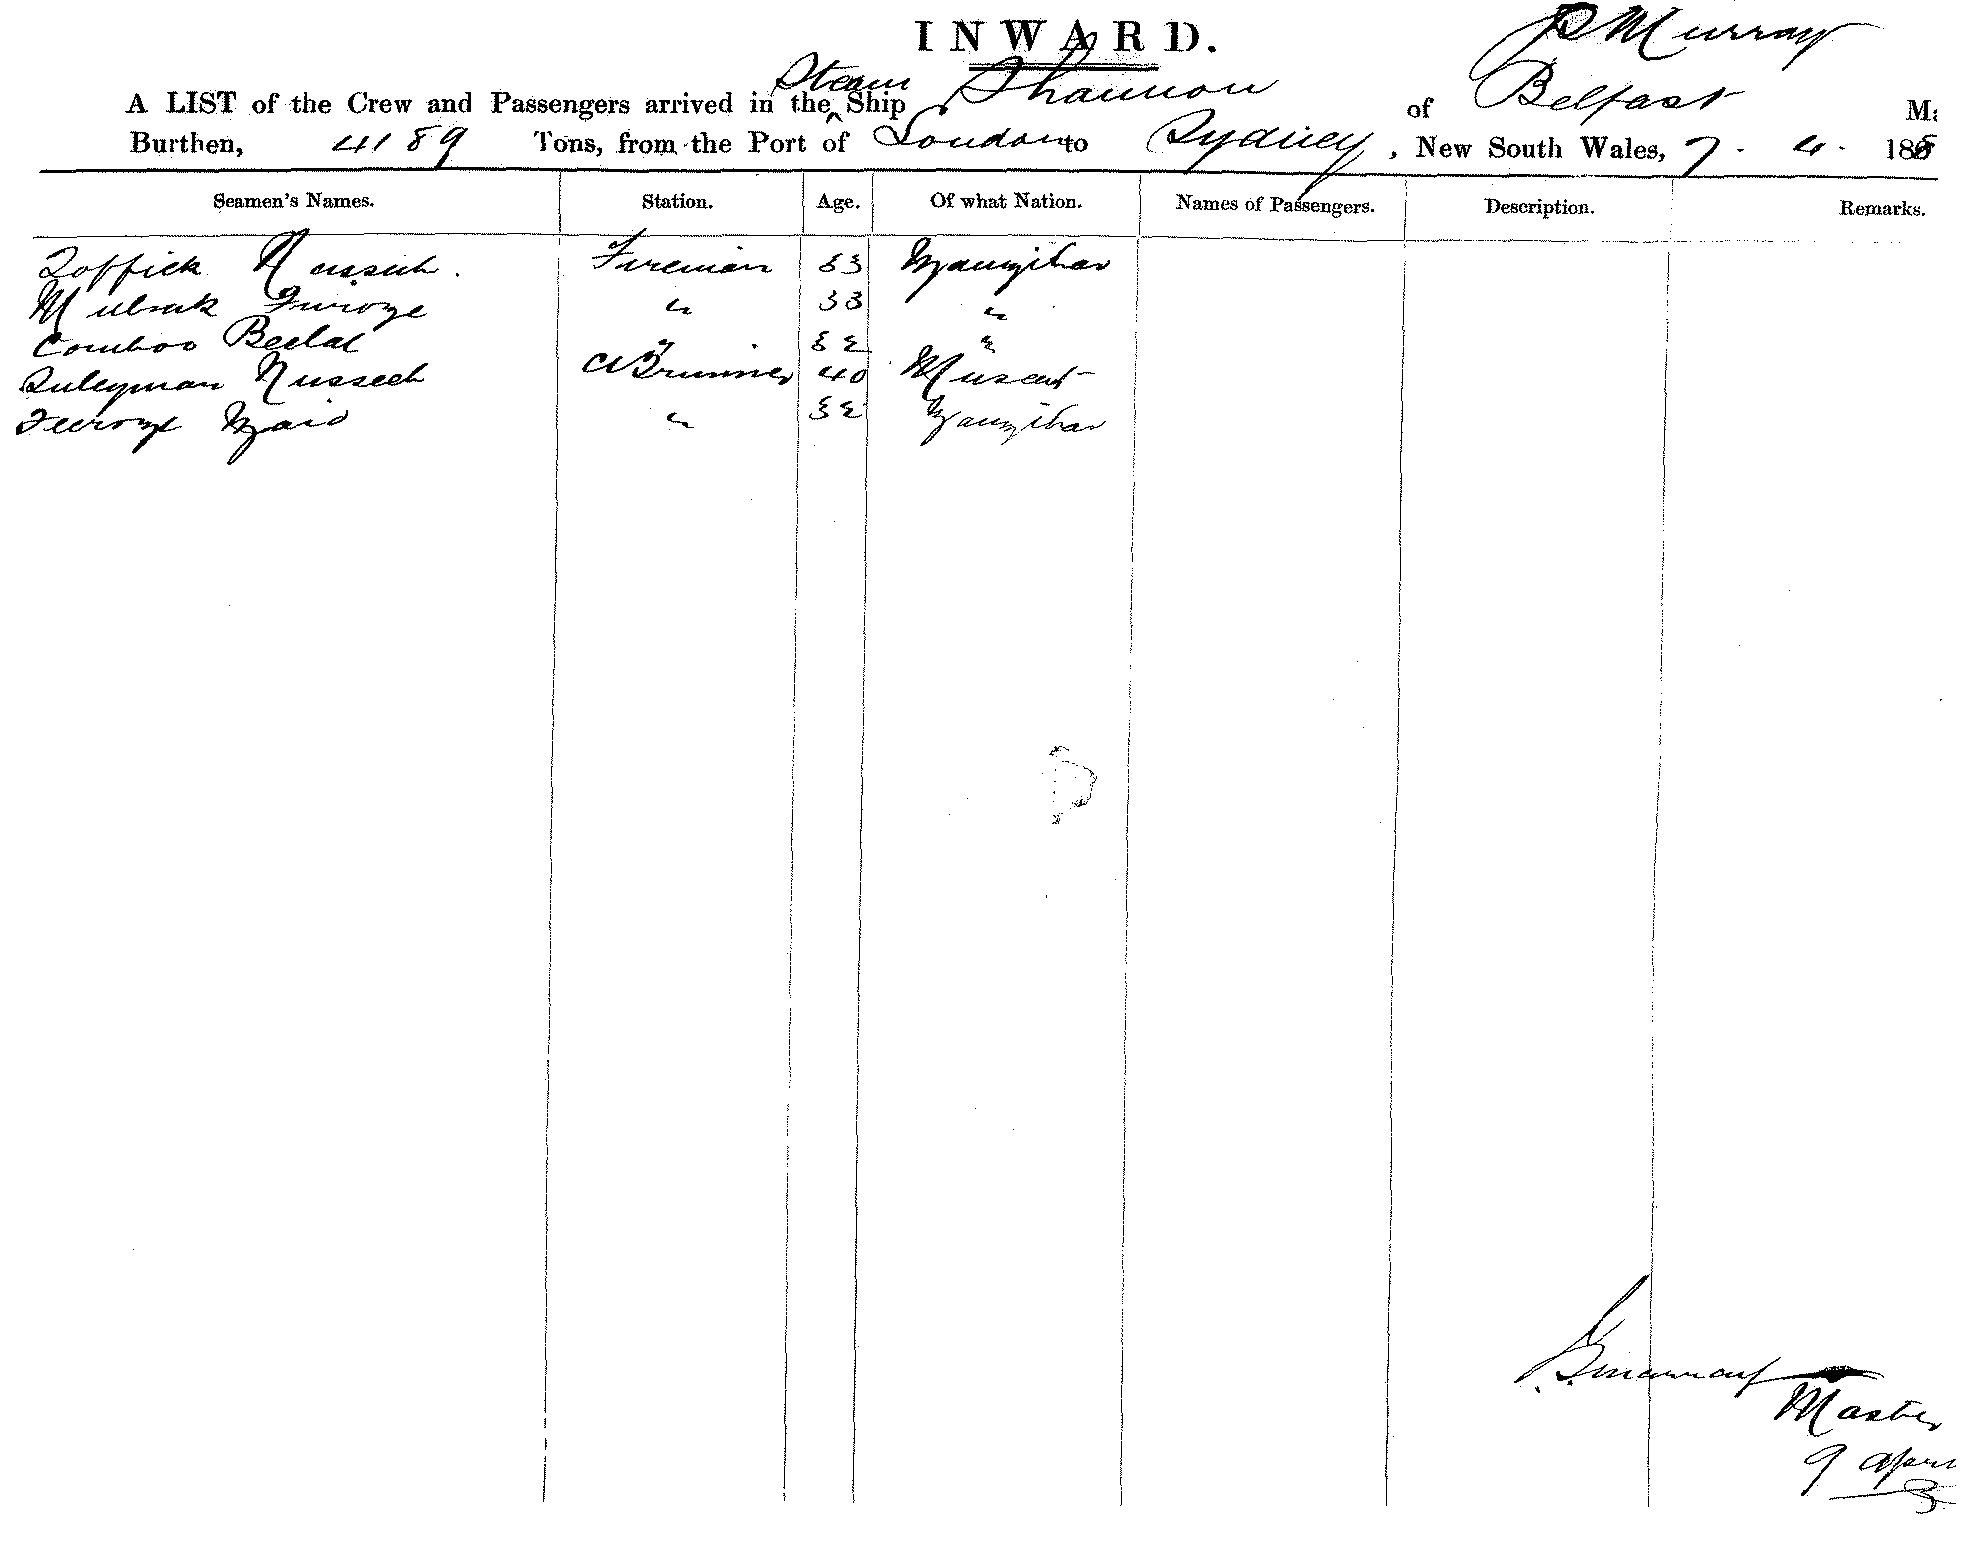 INWARD.
P Murray
A LIST of the Crew and Passengers arrived in the Steam Ship Shannon of Belfast
Burthen, 4189 Tons, from the Port of London to Sydney, New South Wales, 7. 4. 188
Seamen's Names. Station. Age. Of what Nation. Names of Passengers. Description. Remarks.
Toffick Nusseeb. Fireman 33 Zanzibar
Mubruk Furoze " 33 "
Comboo Beelal " 32 "
Suleyman Nusseeb C Trimmer 40 Muscat
Feeroze Zaid " 32 Zanzibar
Master
9 April